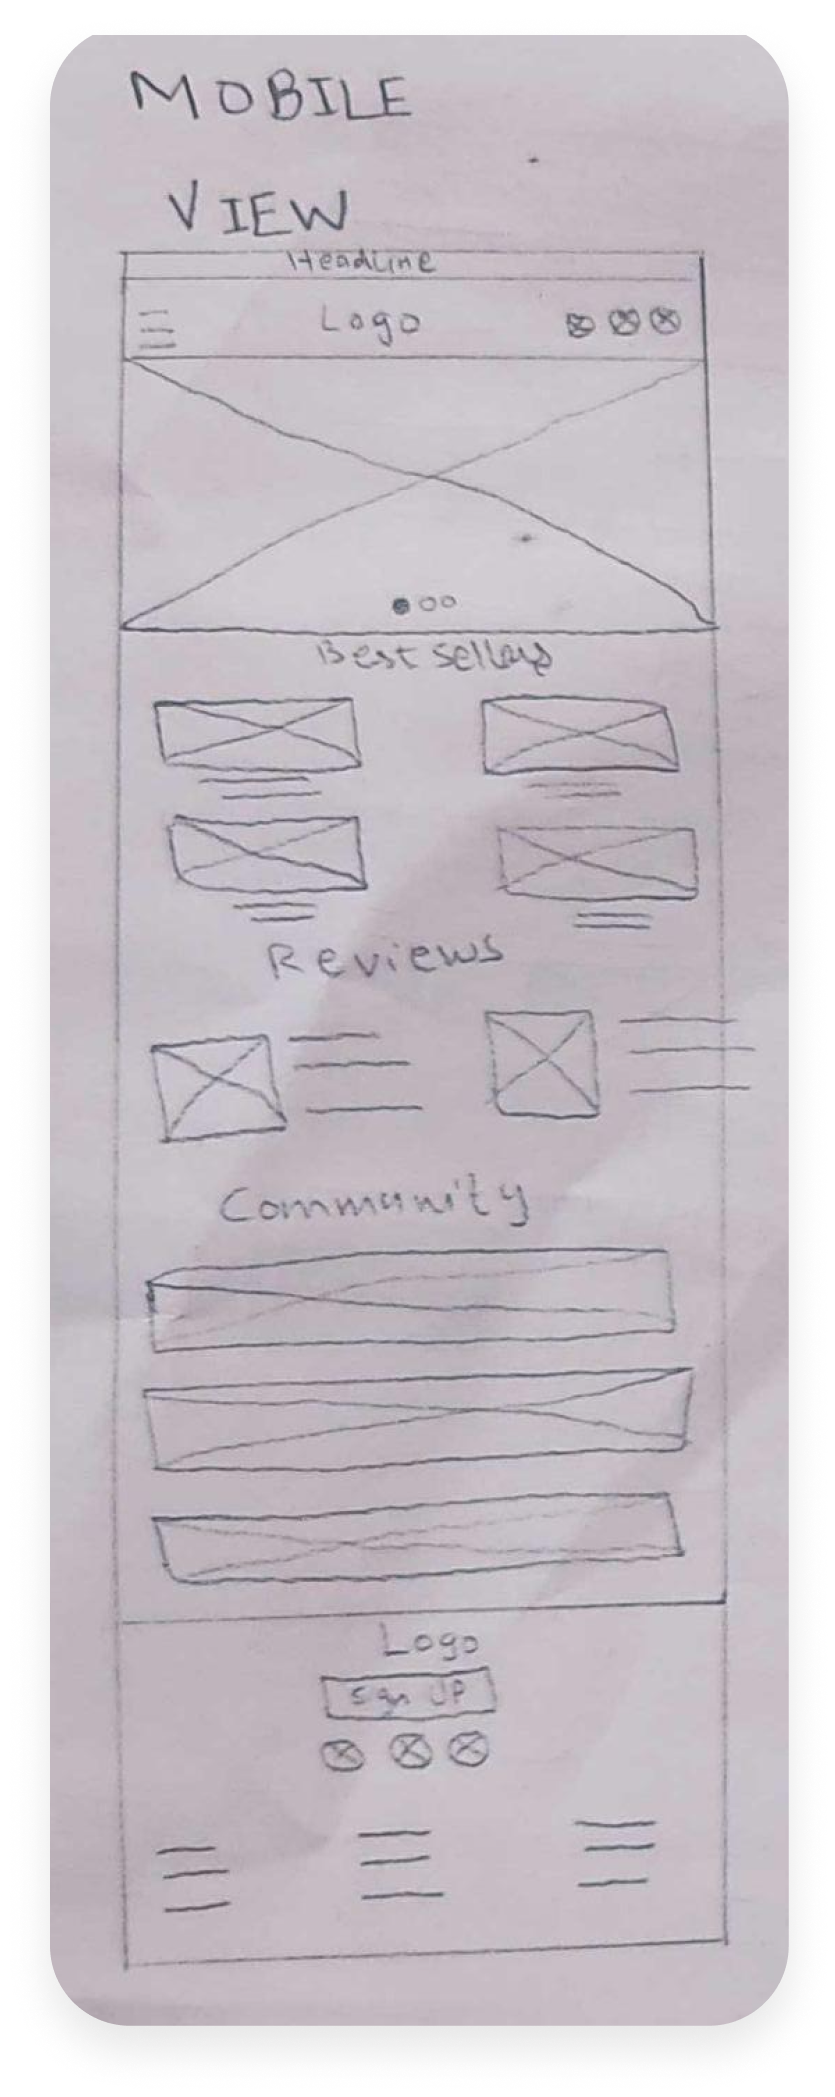 MOBILE
VIEW
Headline
Logo
Best sellers
Reviews
Community
Logo
Sign UP